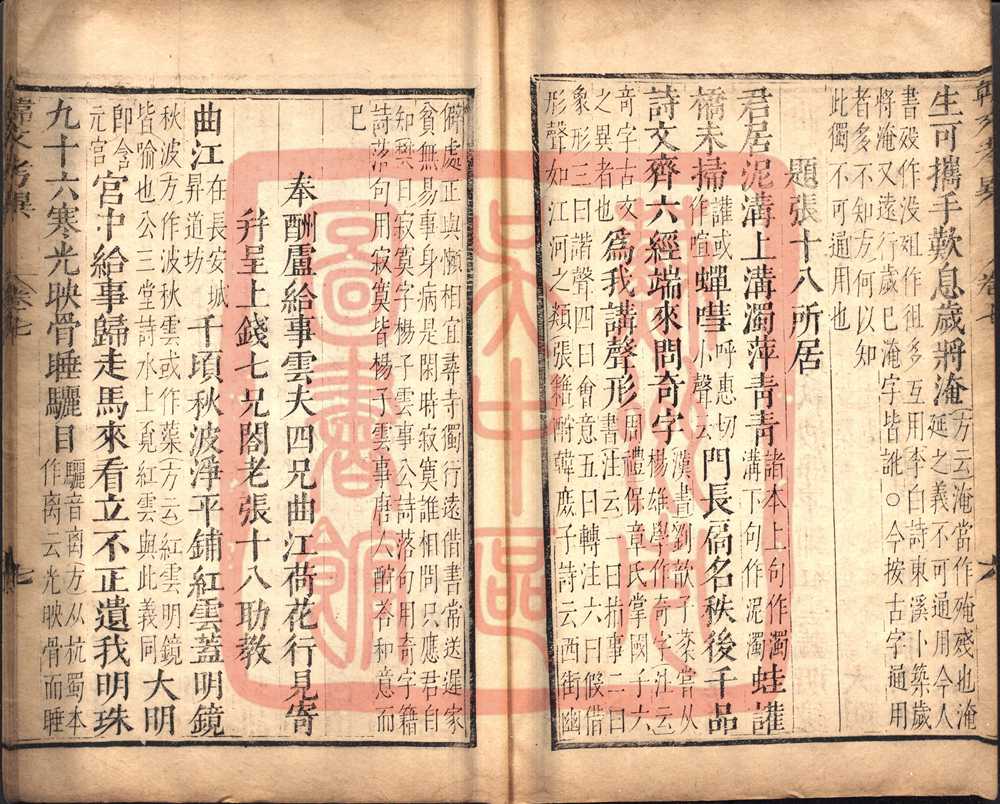 韓文考異 卷七 六
生可攜手歎息歲將淹
方云淹當作殗殘也淹
延之義不可通用今人
書殁作没殂作徂多互用李白詩東溪卜築歲
將淹又遠行歲巳淹字皆訛○今按古字通用
者多不知方何以知
此獨不可通用也
題張十八所居
君居泥溝上溝濁萍青青
諸本上句作濁
溝下句作泥濁
蛙讙
橋未掃
讙或
作喧
蟬嘒
呼惠切
小聲云
門長扃名秩後千品
詩文齊六經端來問奇字
漢書劉歆子棻嘗从
楊雄學作奇字注云
奇字古文
之異者也
爲我講聲形
周禮保章氏掌國子六
書注云一曰指事二曰
象形三曰諧聲四曰會意五曰轉注六曰假借
形聲如江河之類張籍酬韓庶子詩云西街幽
僻處正與懶相宜尋寺獨行遠借書常送遲家
貧無易事身病是閑時寂寞誰相問只應君自
知樊曰寂寞字楊子雲事公詩落句用奇字籍
詩落句用寂寞皆楊子雲事唐人酬荅和意而
已
奉酬盧給事雲夫四兄曲江荷花行見寄
幷呈上錢七兄閣老張十八助教
曲江
在長安城
昇道坊
千頃秋波淨平鋪紅雲蓋明鏡
秋波方作波秋雲或作蕖方云紅雲明鏡
皆喻也公三堂詩水上覓紅雲與此義同
大明
即含
元宫
宮中給事歸走馬來看立不正遺我明珠
九十六寒光映骨睡驪目
驪音离方从杭蜀本
作离云光映骨而睡
韓文考異 卷七 七